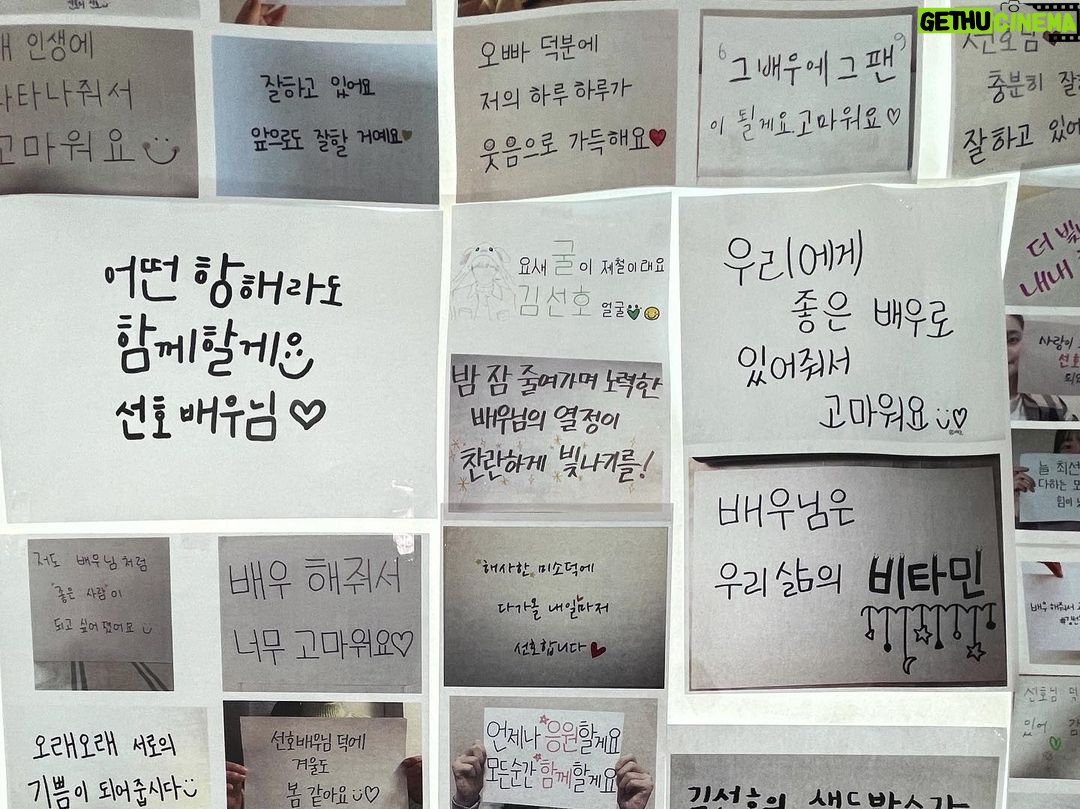 GETHUCINEMA
인생에
타나줘서
고마워요
잘하고 있어요
앞으로도 잘할 거예요
오빠 덕분에
저의 하루하루가
웃음으로 가득해요
6 그 배우에 그 팬 9
이 될게요 고마워요
선호님
충분히 잘
잘하고 있어
어떤 항해라도
함께할게요
선호 배우님
요새 굴이 제철이래요
김선호 얼굴
밤 잠 줄여가며 노력한
배우님의 열정이
찬란하게 빛나기를!
우리에게
좋은 배우로
있어줘서
고마워요
더 빛
내내
사랑이
선호
되
늘 최선
다하는 모
힘이
저도 배우님처럼
좋은 사람이
되고 싶어졌어요
배우 해줘서
너무 고마워요
해사한 미소덕에
다가올 내일마저
선호합니다
배우님은
우리 삶의 비타민
배우 해줘서
선호님 덕
있어
오래오래 서로의
기쁨이 되어줍시다
선호배우님 덕에
겨울도
봄 같아요
언제나 응원할게요
모든순간 함께할게요
김선호의